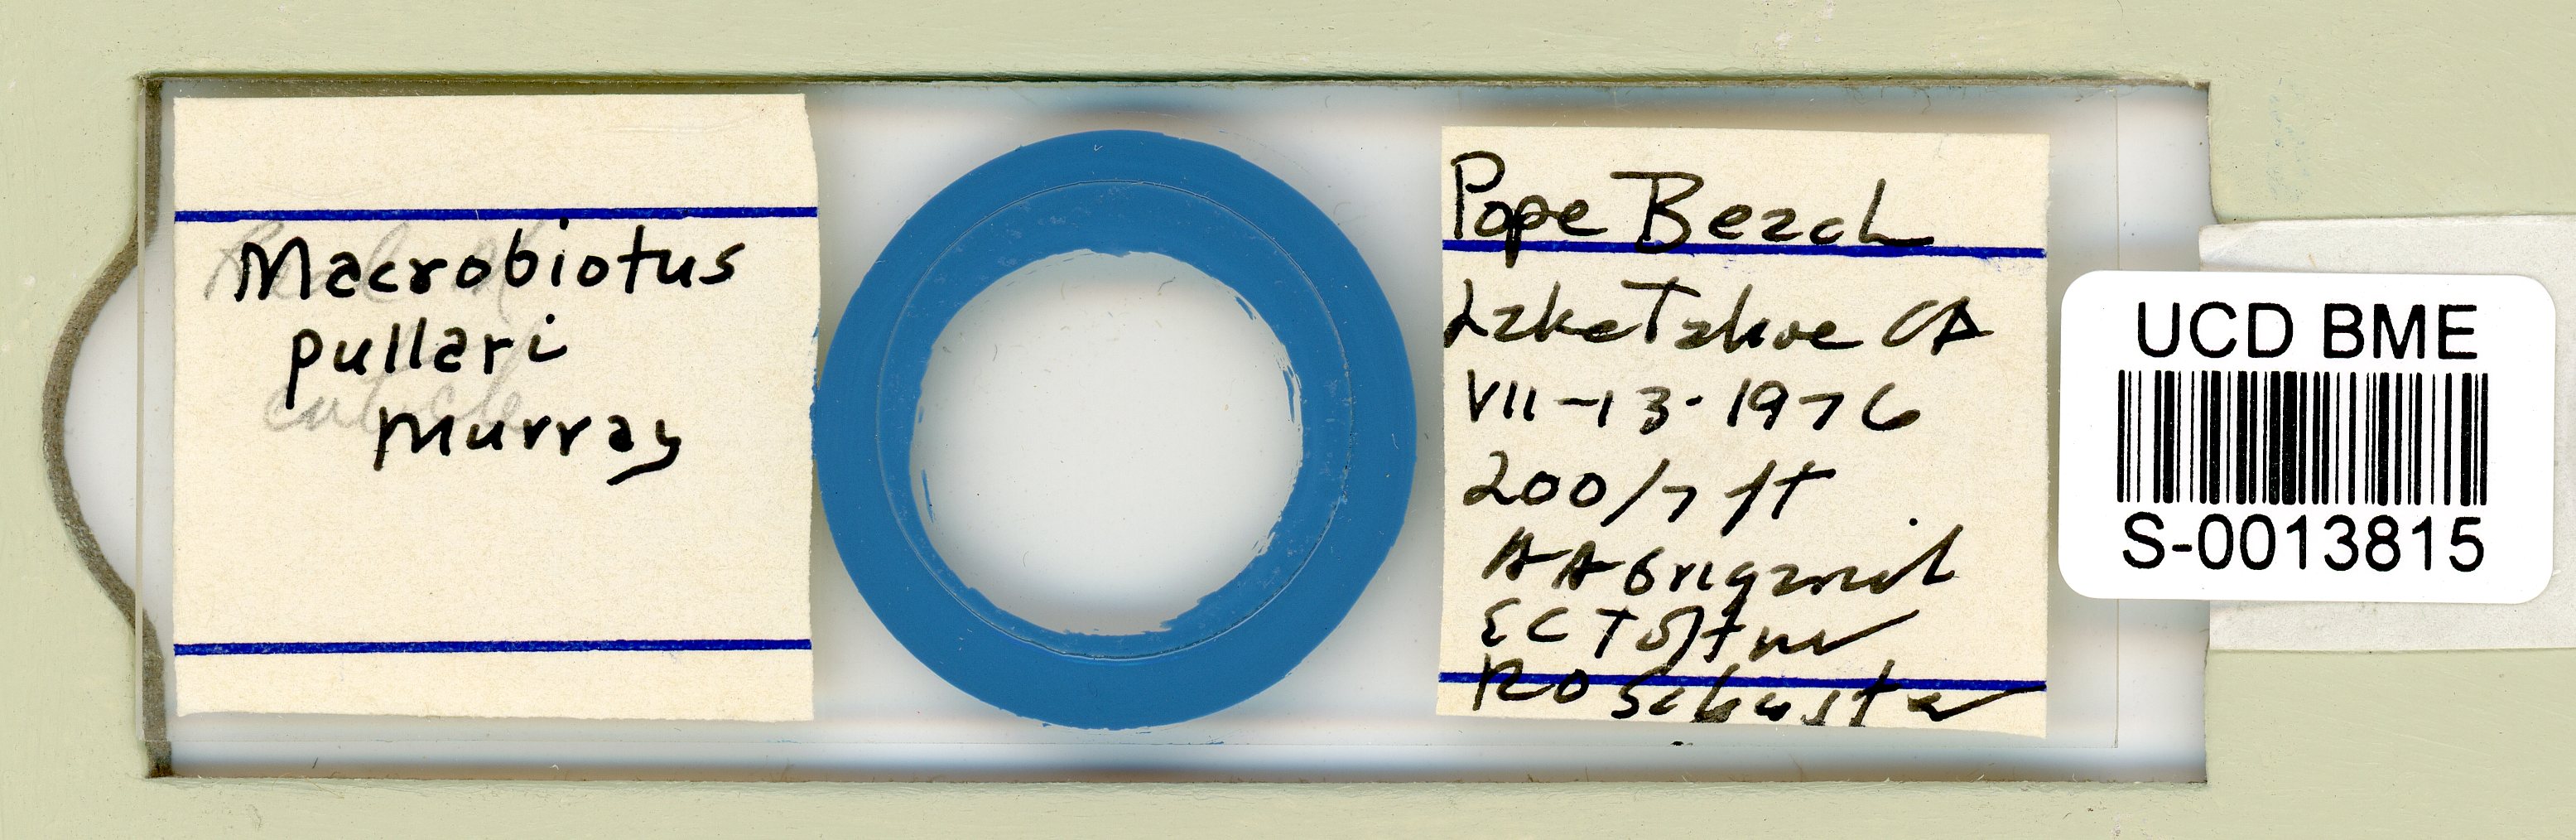 Macrobiotus
pullari
Murray
Pope Beach
Lake Tahoe CA
VII-13-1976
200/7 ft
AA Grigarick
EC Toftner
RO Schuster
UCD BME
S-0013815